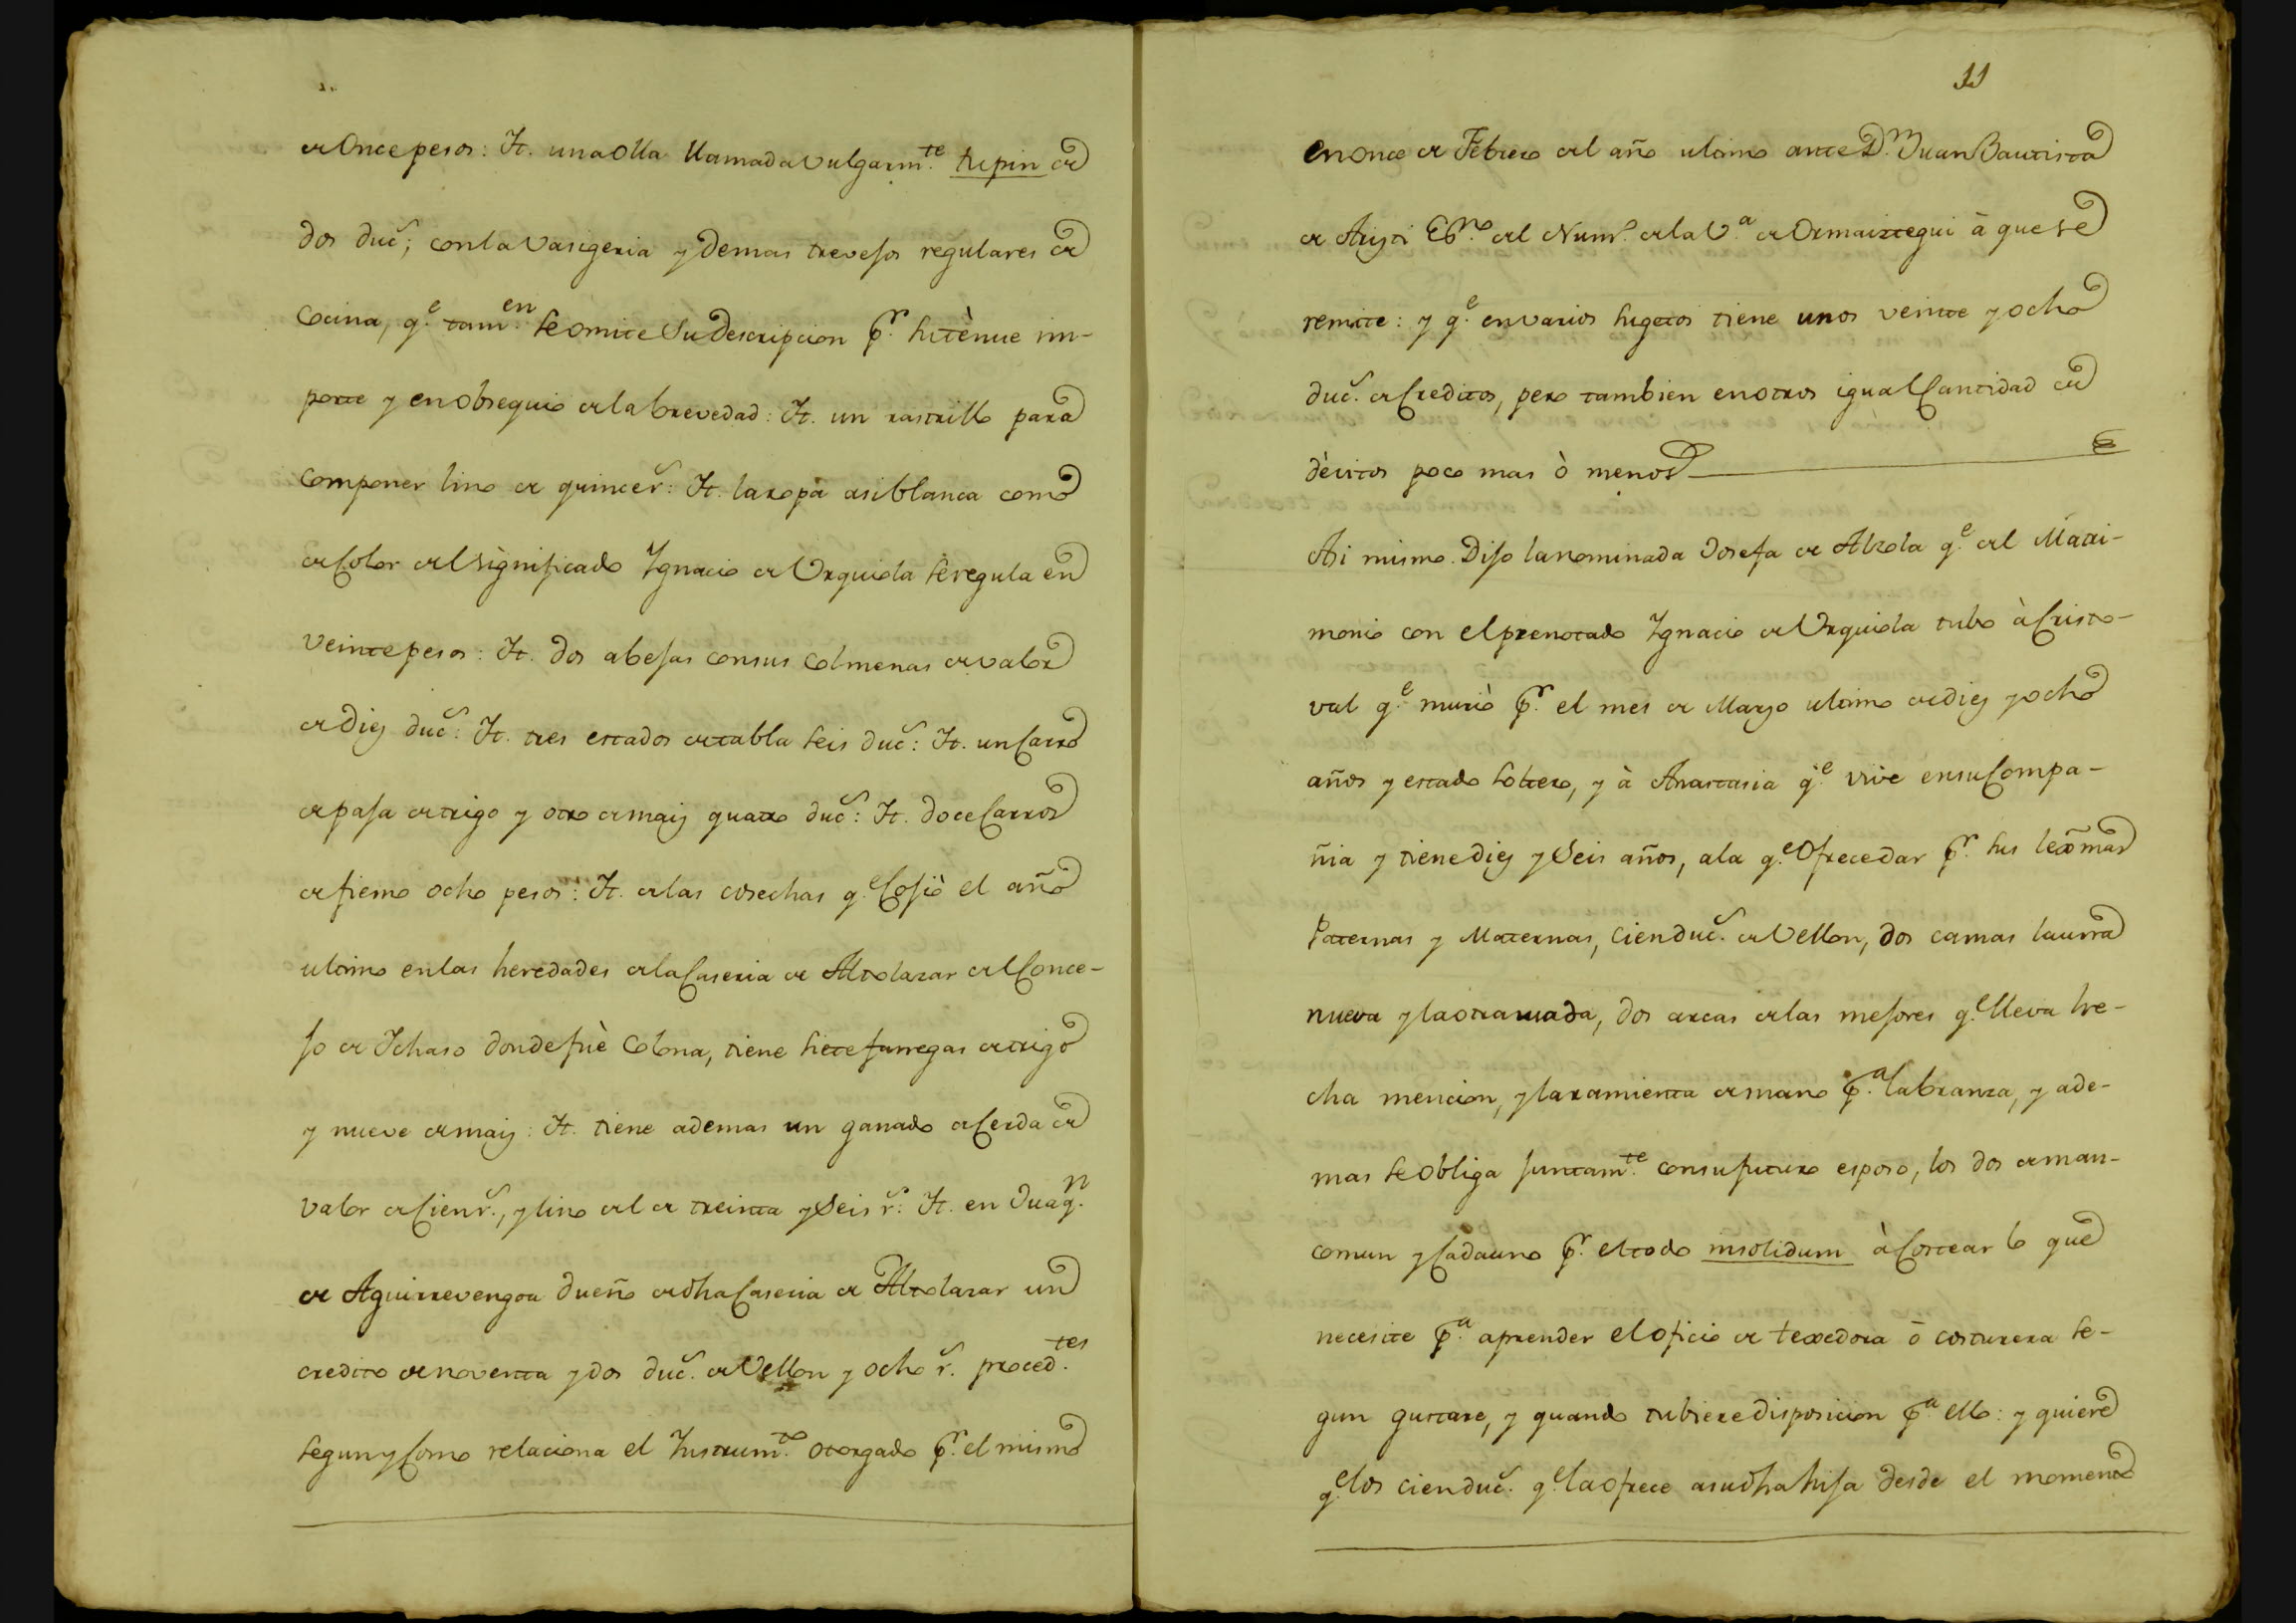 de Once pesos: It. una olla llamada vulgarm.te tupin de
dos duc.s; con la vasigeria y demas trevejos regulares de
Cocina, q.e tam.en se omite su descripcion p.r su tènue im-
porte y en obsequio de la brevedad: It. un rastrillo para
componer lino de quince r.s: It. la ropa asi blanca como
de Color del significado Ygnacio de Urquiola se regula en
Veinte pesos: It. dos abejas con sus Colmenas de valor
de diez duc.s: It. tres estados de tabla seis duc.s: It. un Carro
de paja de trigo y otro de maiz quatro duc.s: It. doce Carros
de fiemo ocho pesos: It. de las cosechas q.e Cojiò el año
ultimo en las heredades de la Caseria de Altolazar del Conce-
jo de Ichaso donde fuè Colona, tiene siete fanegas de trigo
y nueve de maiz: It. tiene ademas un ganado de Cerda de
valor de Cien r.s, y lino del de treinta y Seis r.s: It. en Juaq.n
de Aguirrevengoa dueño de dha Caseria de Altolazar un
credito de noventa y dos duc.s de Vellon y ocho r.s proced.tes
segun y Como relaciona el Instrum.to otorgado p.r el mismo
11
en once de Febrero del año ultimo ante D.n Juan Bautista
de Aristi Es.no del Num.o de la V.a de Ormaiztegui à que se
remite: y q.e en varios sugetos tiene unos veinte y ocho
duc.s de Creditos, pero tambien en otros igual Cantidad de
dèvitos poco mas ò menos
Asi mismo Dijo la nominada Josefa de Alzola q.e del Matri-
monio con el prenotado Ygnacio de Urquiola tubo à Cristo-
val q.e muriò p.r el mes de Marzo ultimo de diez y ocho
años y estado soltero, y à Anastasia q.e vive en su Compa-
ñia y tiene diez y Seis años, a la q.e Ofrece dar p.r sus lexmas
Paternas y Maternas, Cien duc.s de Vellon, dos camas la una
nueva y la otra usada, dos arcas de las mejores q.e lleva he-
cha mencion, y la xamienta de mano p.a labranza, y ade-
mas se obliga juntam.te con su futuro esposo, los dos de man-
comun y Cada uno p.r el todo insolidum à Costear lo que
necesite p.a aprender el oficio de texedora ò costurera se-
gun gustare, y quando tubiere disposicion p.a ello: y quiere
q.e los cien duc.s q.e la ofrece a su dha hija desde el momento